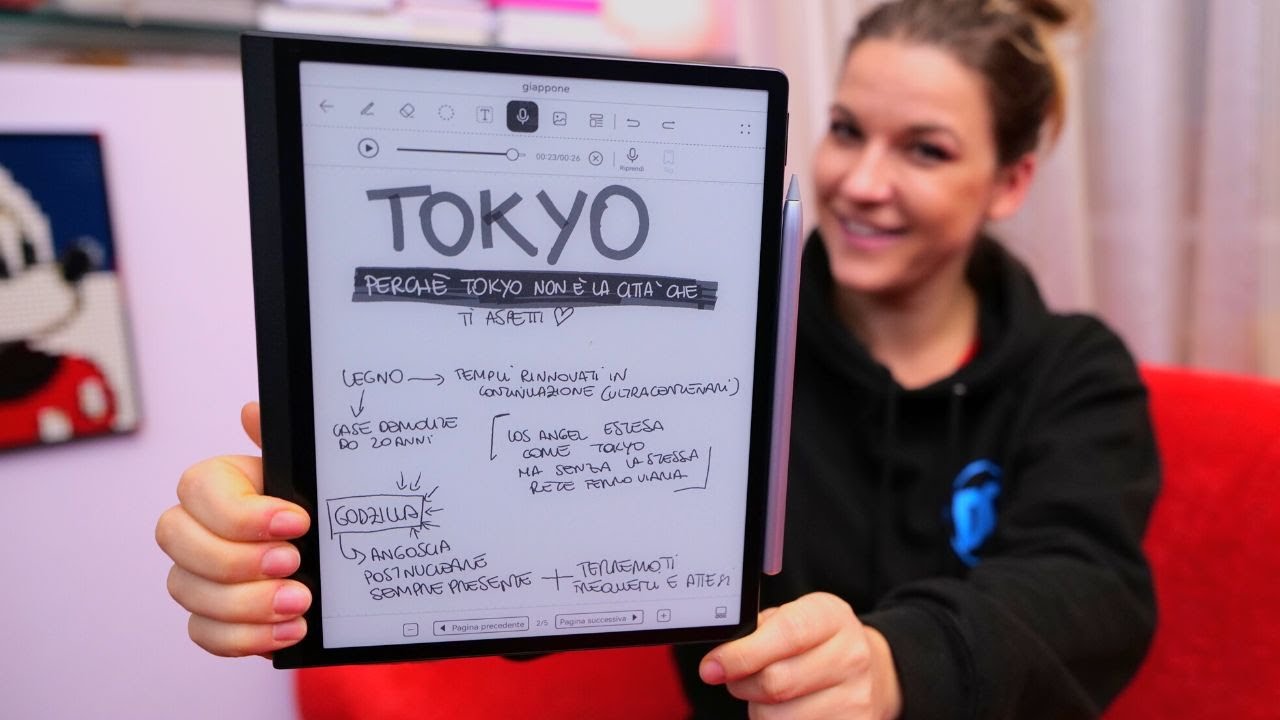 giappone
T
00:23/00:26
Riprendi
TOKYO
PERCHÈ TOKYO NON È LA CITTA' CHE
TI ASPETTI ♡
LEGNO → TEMPLI RINNOVATI IN
CONTINUAZIONE (ULTRACENTENARI)
CASE DEMOLITE
DO 20 ANNI
LOS ANGEL ESTESA
COME TOKYO
MA SENZA LA STESSA
RETE FERROVIARIA
GODZILLA
ANGOSCIA
POSTNUCLEARE
SEMPRE PRESENTE + TERREMOTI
FREQUENTI E ATTESI
Pagina precedente 2/5 Pagina successiva